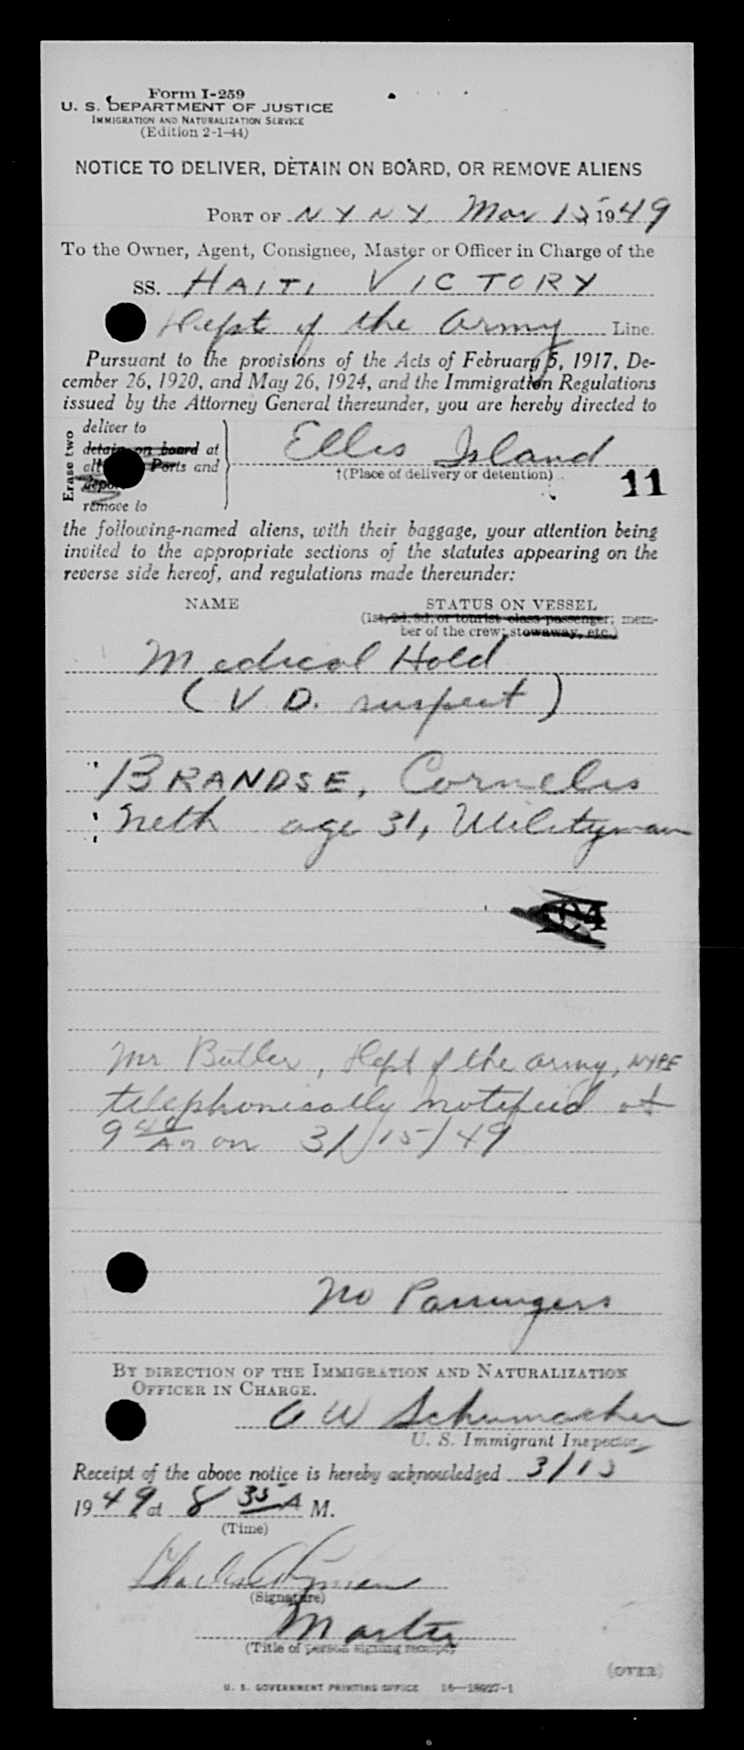 Form I-259
U. S. DEPARTMENT OF JUSTICE
IMMIGRATION AND NATURALIZATION SERVICE
(Edition 2-1-44)
NOTICE TO DELIVER, DETAIN ON BOARD, OR REMOVE ALIENS
PORT OF N Y N Y Mar 15 1949
To the Owner, Agent, Consignee, Master or Officer in Charge of the
SS. HAITI VICTORY
Dept of the Army Line.
Pursuant to the provisions of the Acts of February 5, 1917, De-
cember 26, 1920, and May 26, 1924, and the Immigration Regulations
issued by the Attorney General thereunder, you are hereby directed to
Erase two
deliver to
detain on board at
all Ports and
remove to
Ellis Island
†(Place of delivery or detention)
11
the following-named aliens, with their baggage, your attention being
invited to the appropriate sections of the statutes appearing on the
reverse side hereof, and regulations made thereunder:
NAME STATUS ON VESSEL
(1st, 2d, 3d, or tourist class passenger; mem-
ber of the crew; stowaway, etc.)
Medical Hold
(V D. suspect)
BRANDSE, Cornelis
Neth age 31, Utilityman
Mr Butler, Dept of the Army, NYPE
telephonically notified at
9 40 AM on 3/15/49
No Passengers
BY DIRECTION OF THE IMMIGRATION AND NATURALIZATION
OFFICER IN CHARGE.
A W Schumacher
U. S. Immigrant Inspector
Receipt of the above notice is hereby acknowledged 3/15
1949 at 8 35 A M.
(Time)
(Signature)
Master
(Title of person signing receipt)
(OVER)
U. S. GOVERNMENT PRINTING OFFICE 16—18027-1